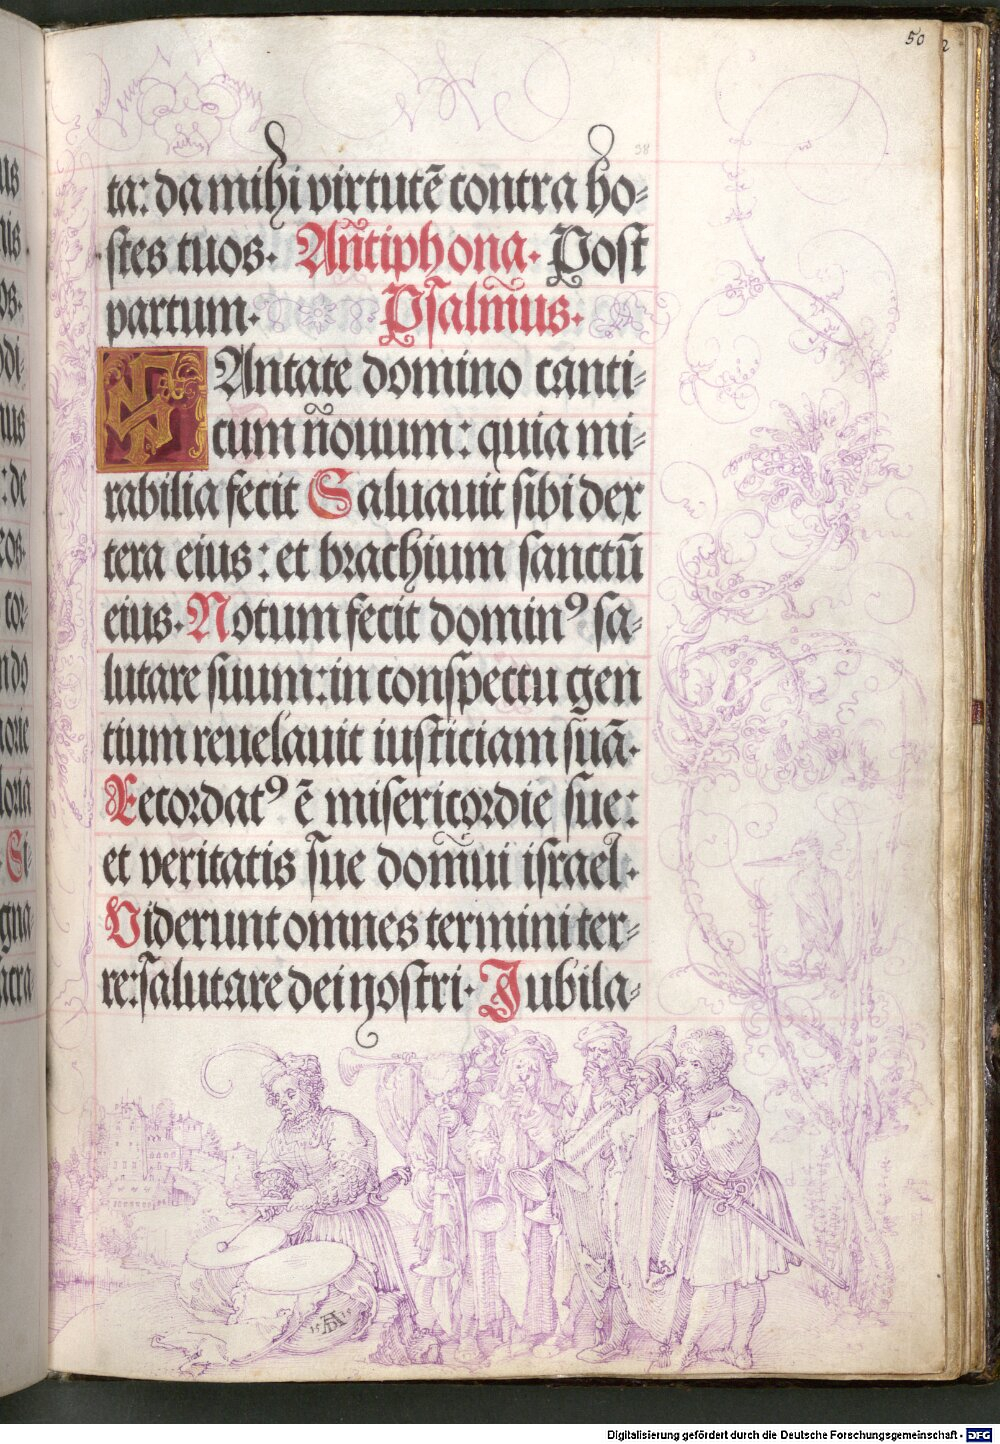 50
38
ta: da mihi virtutē contra ho-
stes tuos. Añtiphona. Post
partum. Psalmus.
CAntate domino canti-
cum ñouum: quia mi-
rabilia fecit Saluauit sibi dex
tera eius: et brachium sanctū
eius. Notum fecit domin⁹ sa-
lutare suum: in conspectu gen
tium reuelauit iusticiam suā.
Recordat⁹ ē misericordie sue:
et veritatis sue domui israel.
Viderunt omnes termini ter-
re: salutare dei nostri. Jubila-
1515
AD
Digitalisierung gefördert durch die Deutsche Forschungsgemeinschaft - DFG